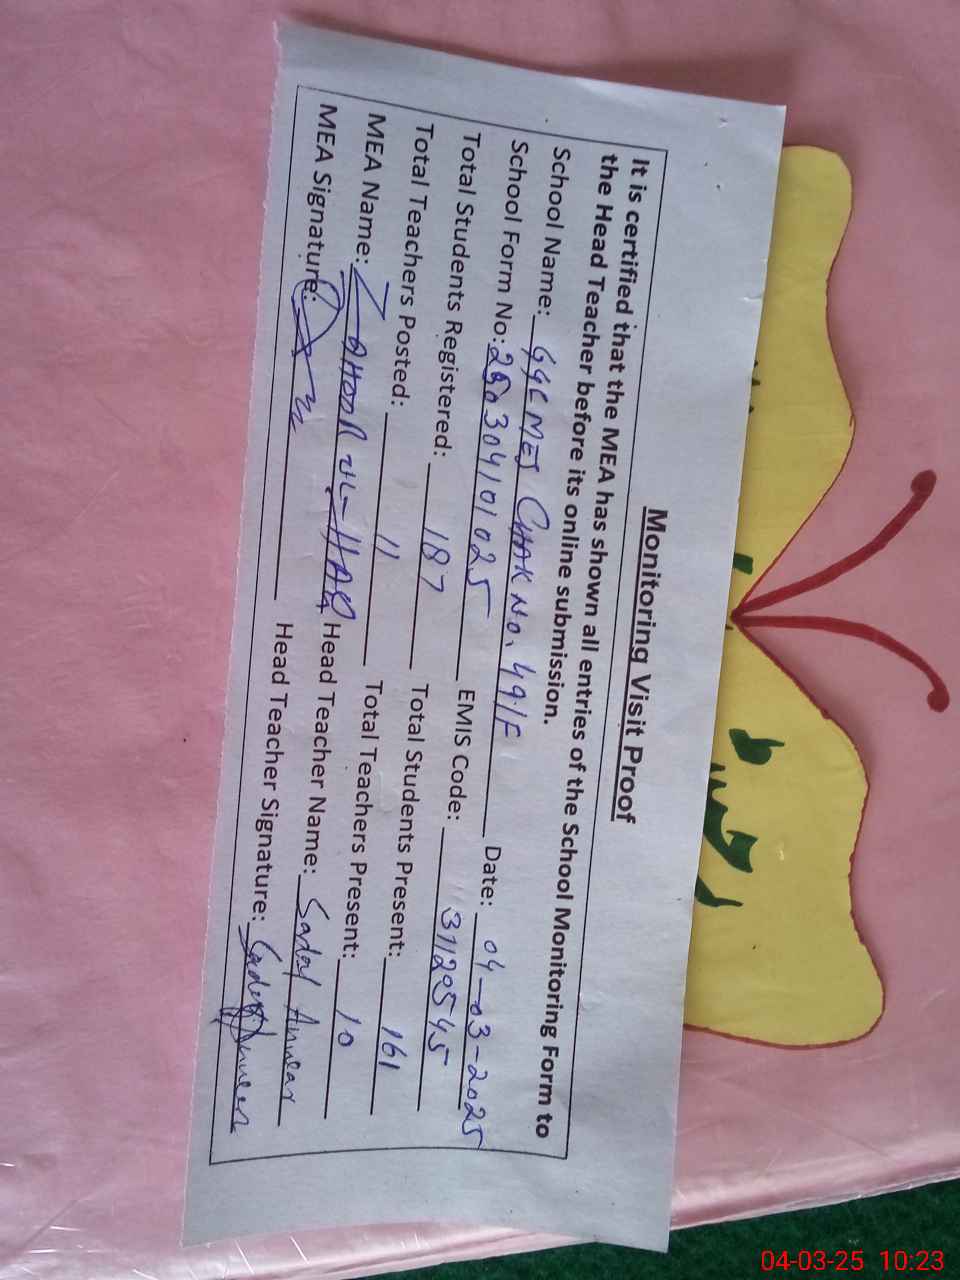 Monitoring Visit Proof
It is certified that the MEA has shown all entries of the School Monitoring Form to
the Head Teacher before its online submission.
School Name: GGCMES CHAK No. 49/F Date: 04-03-2025
School Form No: 250304101025 EMIS Code: 31120545
Total Students Registered: 187 Total Students Present: 161
Total Teachers Posted: 11 Total Teachers Present: 10
MEA Name: ZAHOOR UL-HAQ Head Teacher Name: Sadaf
MEA Signature: Head Teacher Signature:
04-03-25 10:23